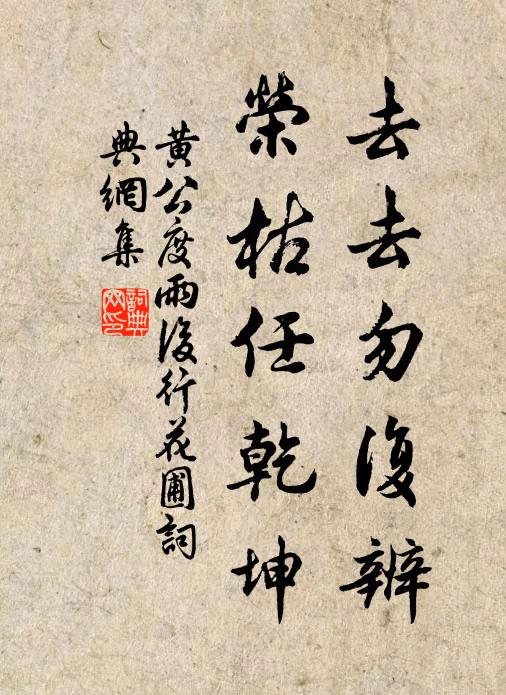 去去勿復辨
榮枯任乾坤
黃公度雨後行花圃詞
典網集
詞典
网印